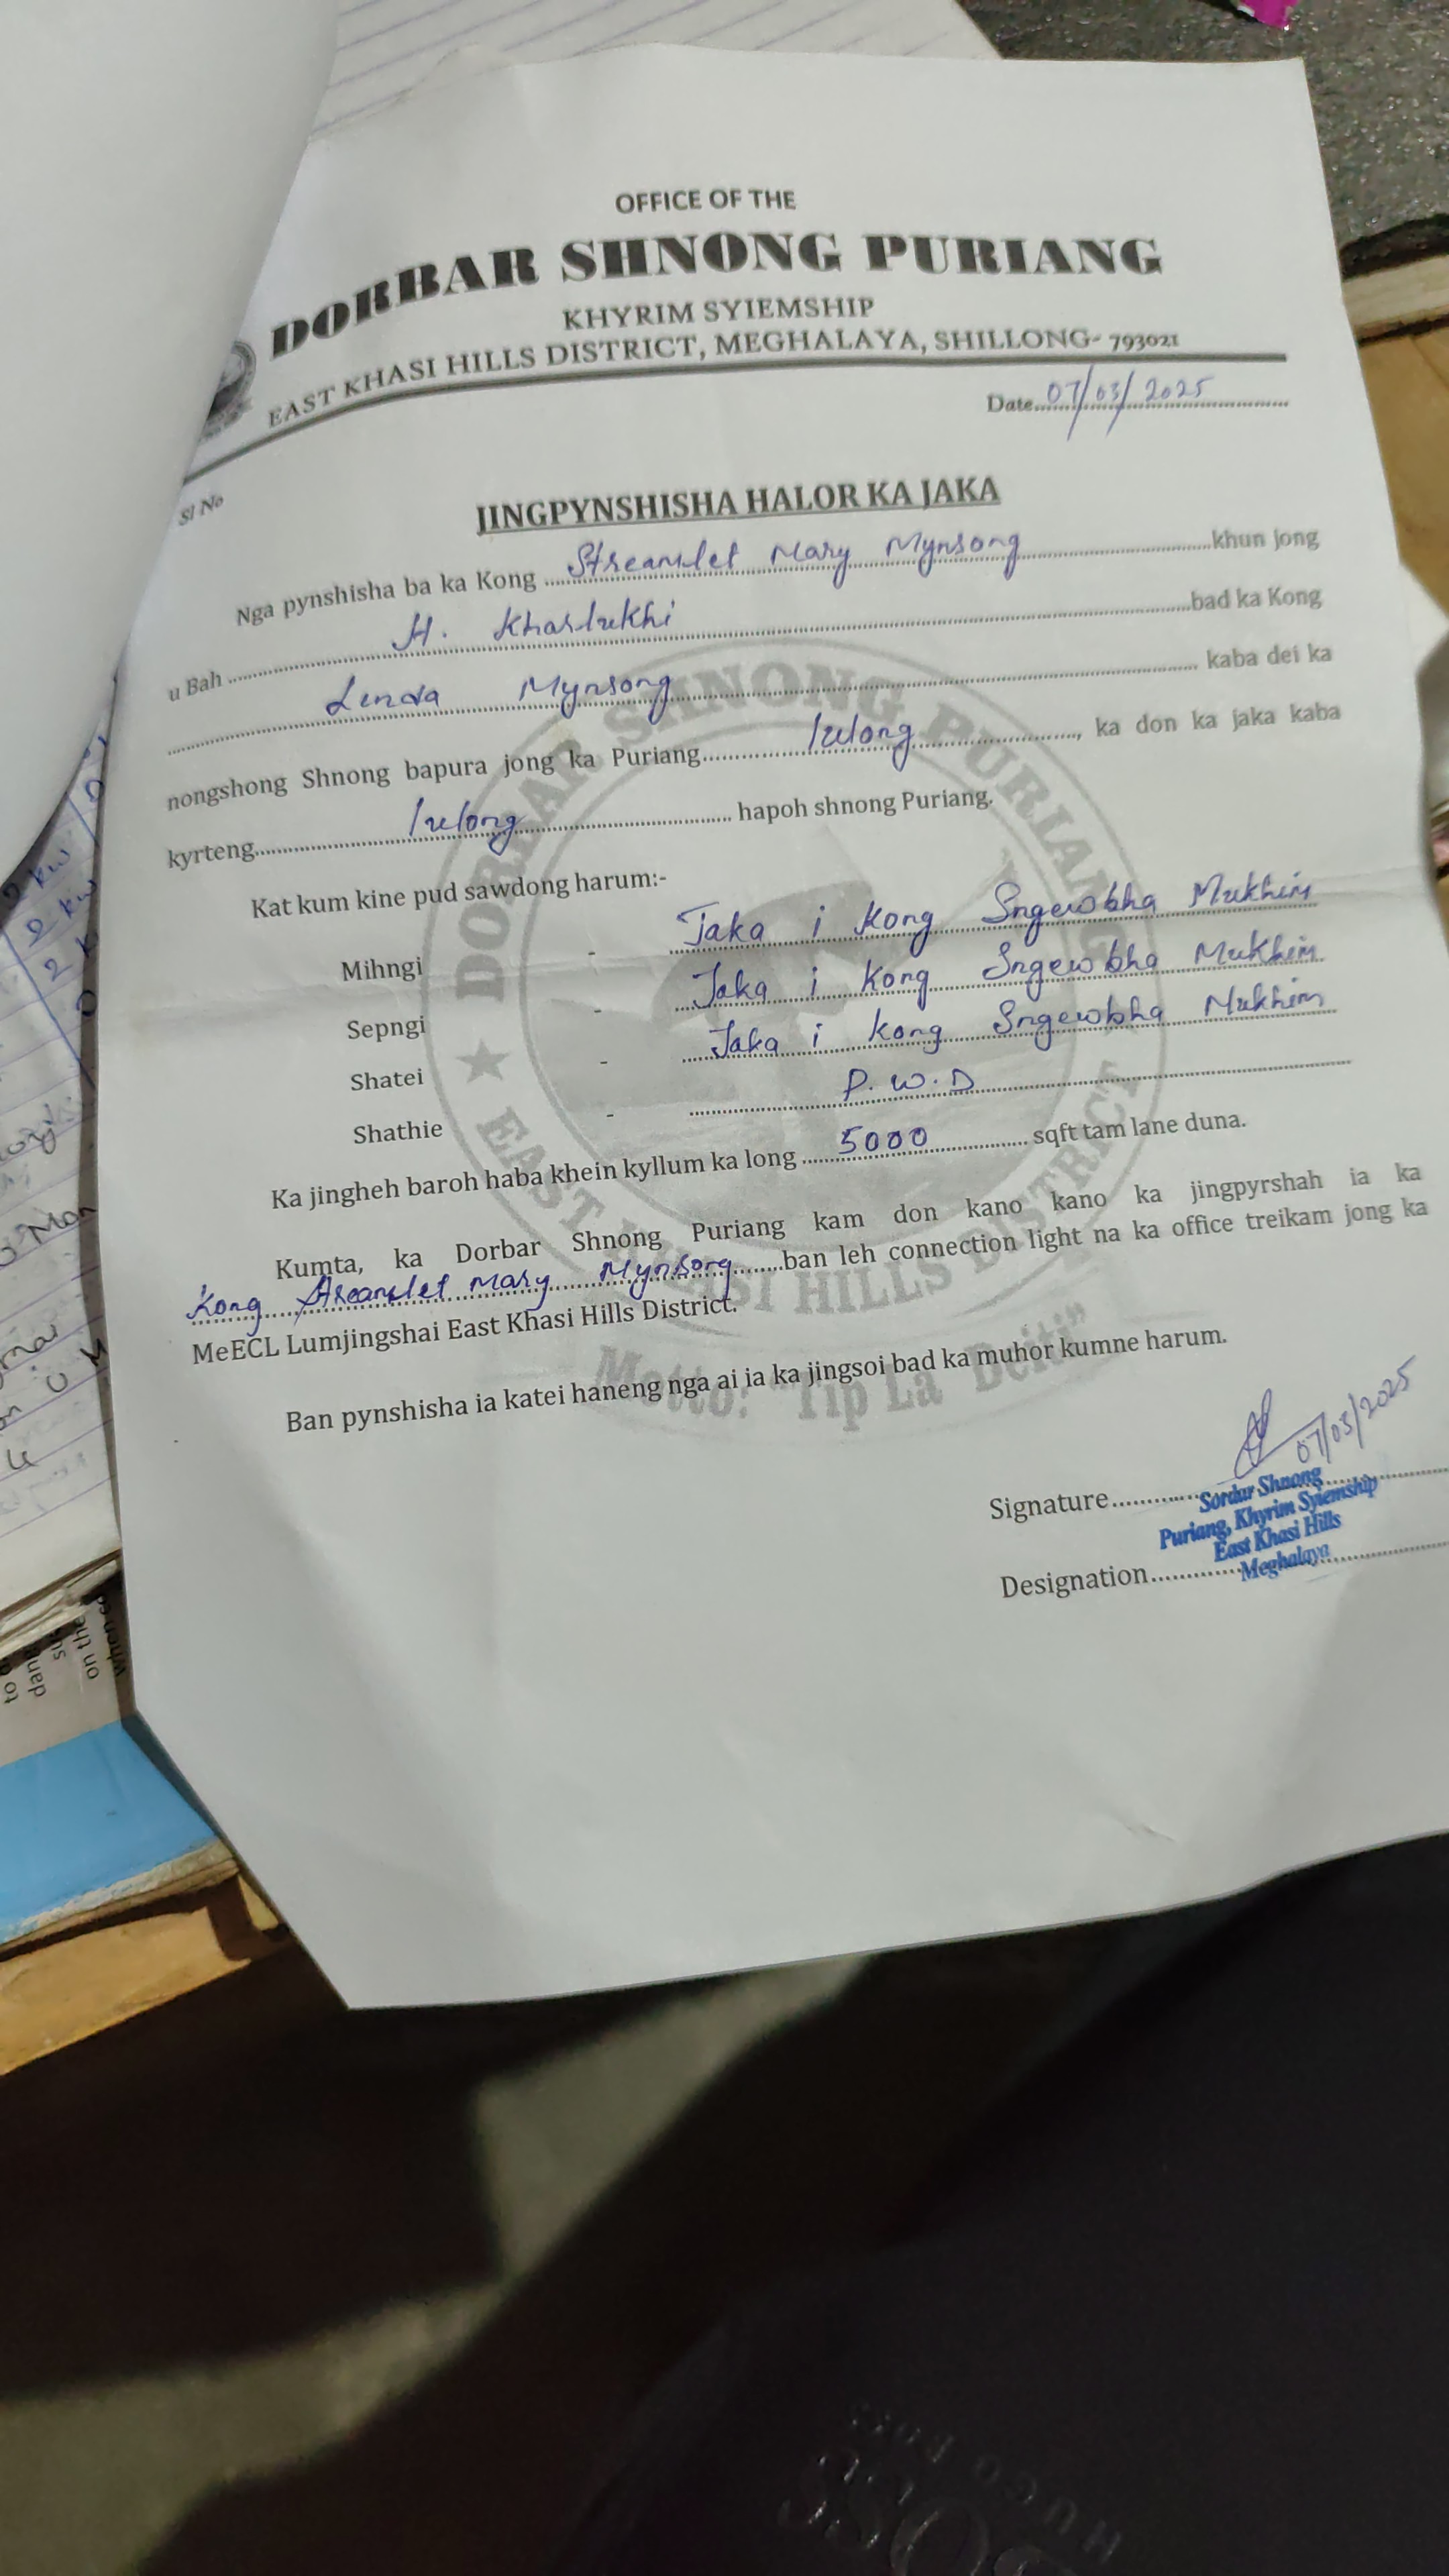 OFFICE OF THE
DORBAR SHNONG PURIANG
KHYRIM SYIEMSHIP
EAST KHASI HILLS DISTRICT, MEGHALAYA, SHILLONG- 793021
Date 07/03/2025
Sl No
JINGPYNSHISHA HALOR KA JAKA
Nga pynshisha ba ka Kong Streamlet Mary Mynsong khun jong
u Bah H. Kharlukhi bad ka Kong
Linda Mynsong kaba dei ka
nongshong Shnong bapura jong ka Puriang Iulong, ka don ka jaka kaba
kyrteng Iulong hapoh shnong Puriang.
Kat kum kine pud sawdong harum:-
Mihngi - Jaka i Kong Sngewbha Mukhim
Sepngi - Jaka i Kong Sngewbha Mukhim
Shatei - Jaka i Kong Sngewbha Mukhim
Shathie - P.W.D
Ka jingheh baroh haba khein kyllum ka long 5000 sqft tam lane duna.
Kumta, ka Dorbar Shnong Puriang kam don kano kano ka jingpyrshah ia ka
Kong Streamlet Mary Mynsong ban leh connection light na ka office treikam jong ka
MeECL Lumjingshai East Khasi Hills District.
Ban pynshisha ia katei haneng nga ai ia ka jingsoi bad ka muhor kumne harum.
07/03/2025
Signature
Sordar Shnong
Puriang, Khyrim Syiemship
East Khasi Hills
Designation
Meghalaya
DORBAR SHNONG PURIANG
EAST KHASI HILLS DISTRICT
Motto: "Tip La Deit"